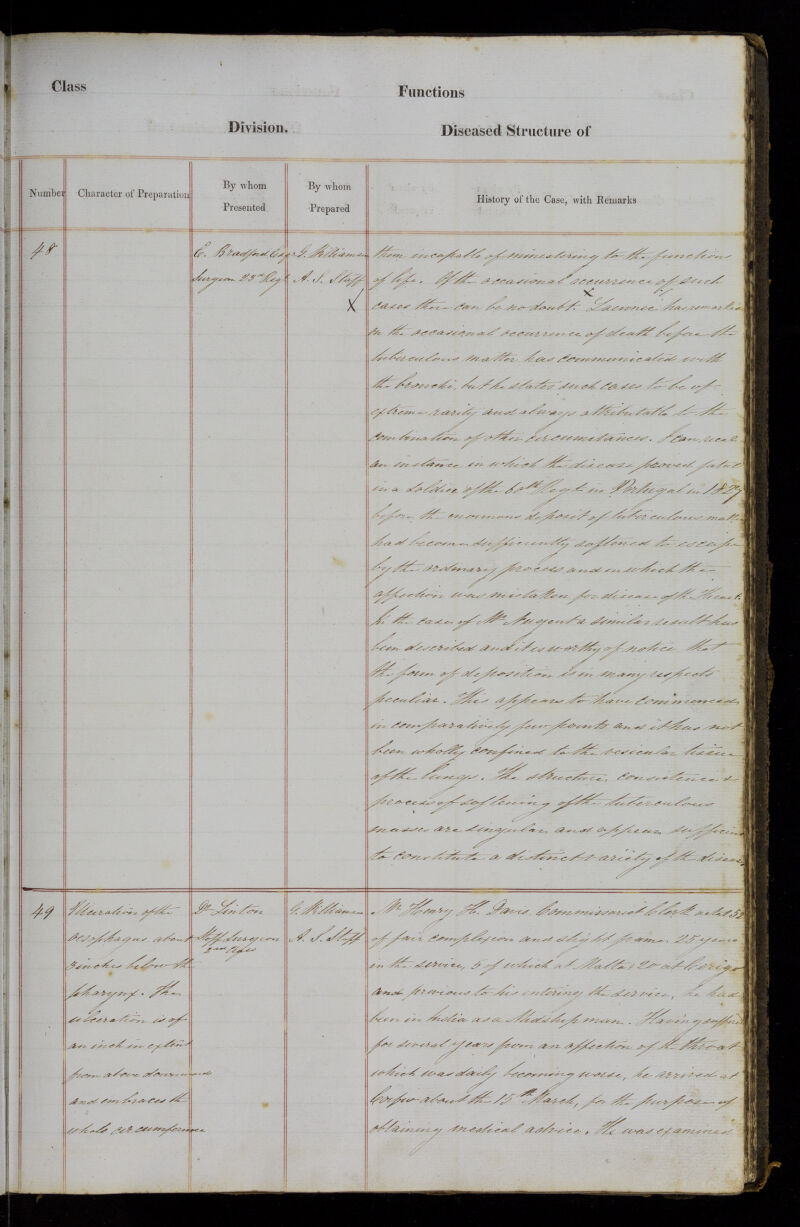 Class
Functions
Division.
Diseased Structure of
Number
Character of Preparation
By whom
Presented
By whom
Prepared
History of the Case, with Remarks
48
E. Bradford Esqr
Surgeon 23rd Regt
G. Williamson
A. S. Staff
X
them incapable of ministering to the functions
of life. Of the occasional occurrence of such
cases there can be no doubt. Laennec has remarked
on the occasional occurrence of death before the
tuberculous matter has communicated with
the bronchi, but he states such cases to be of
extreme rarity and always attributable to the
combination of other circumstances. I can recal
an instance in which the disease proved fatal
in a Soldier of the 60th Regt in Portugal in 1827
before the enormous deposit of tuberculous matter
had become sufficiently softened to escape
by the ordinary process and in which the
affection was mistaken for disease of the Heart.
In the case of Mr Nugent a similar result has
been described and it is worthy of notice that
the form of deposition is in many respects
peculiar. This appears to have commenced
in comparatively few points and it has not
been wholly confined to the vesicular tissue
of the lungs. The structure, consistence &
process of softening of the tuberculous
masses are singular and appear sufficient
to constitute a distinct variety of the disease
49
Ulceration of the
oesophagus about
3 inches below the
pharynx. The
ulceration is of
an inch in extent
from above downwards
and embraces the
whole circumference
Dr Linton
Staff Surgeon
2nd Class
G. Williamson
A. S. Staff
Mr Henry Th. Davis, Commissariat Clerk aetat 52
of fair complexion and slight frame. 25 years
in the service, 5 of which at Malta & 20 at Cerigo
and previous to his entering the service, he had
been in India as a Midshipman. Having suffered
for several years from an affection of the throat
which was daily becoming worse, he arrived at
Corfu about the 15th March, for the purpose of
obtaining medical advice. He was examined